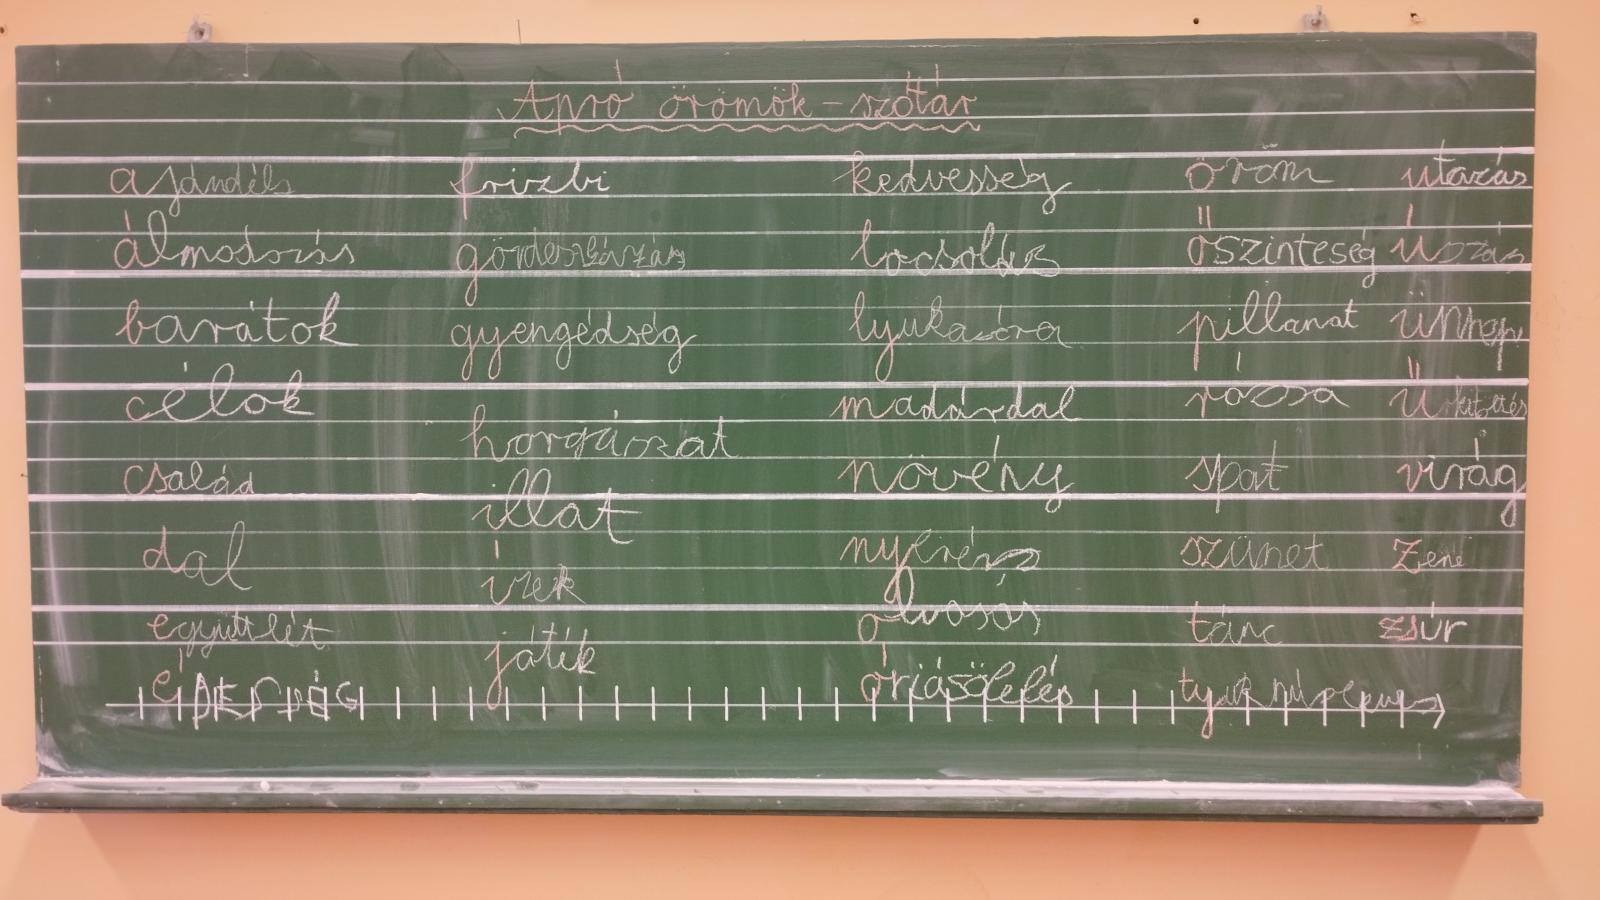 Apró örömök - szótár
ajándék
álmodozás
barátok
célok
család
dal
együttlét
édesség
frizbi
gördeszkázás
gyengédség
horgászat
illat
ízek
játék
kedvesség
locsolás
lyukasóra
madárdal
növény
nyerés
olvasás
óriásölelés
öröm
őszinteség
pillanat
rózsa
spot
szünet
tánc
utazás
úszás
ünnep
virág
zene
zsúr